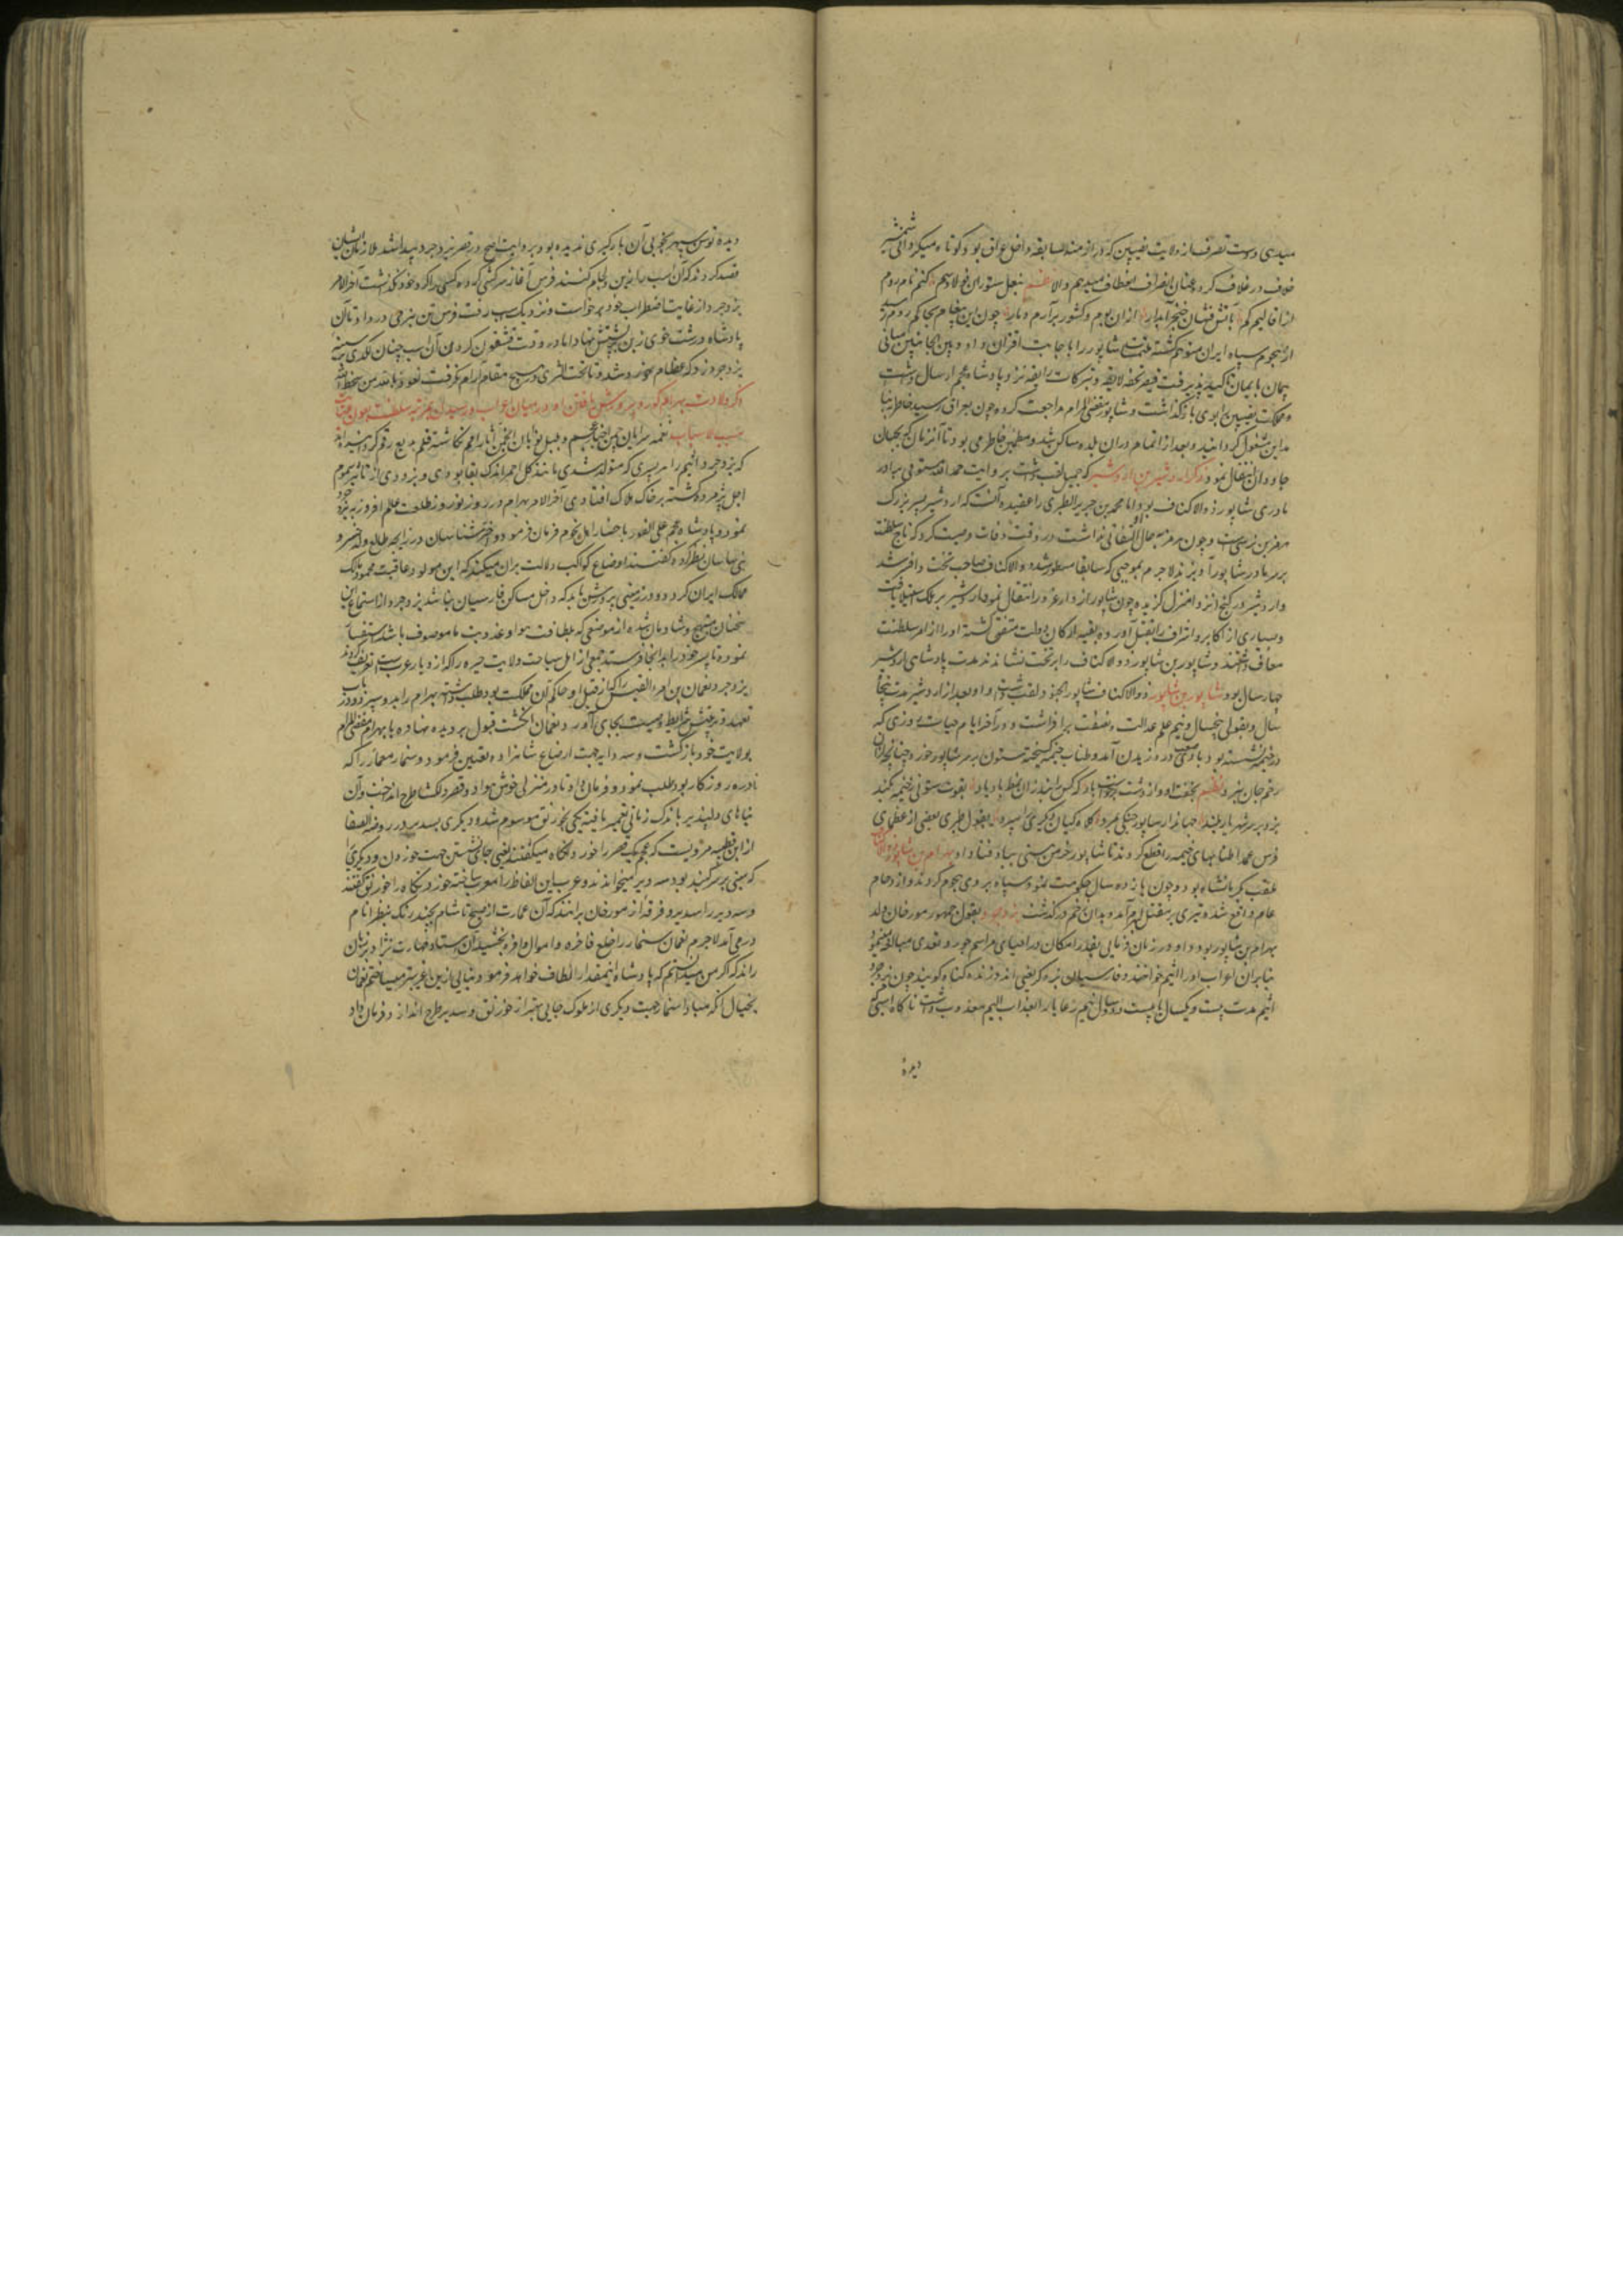 میدهی و دست تصرف از ولایت نصیبین که در ازمنه سابقه داخل عراق بود کوتاه میکردانی شمشیر
خلاف در غلاف کرده عنان انصراف انعطاف میدهم والا نظم بنعل ستوران فولاد سم کنم نام روم
از اقالیم کم بآتش فشان خنجر آبدار از آن بوم و کشور برآرم دمار چون این پیغام بحاکم روم رسید
از هجوم سپاه ایران متوهم کشته ملتمس شاپور را باجابت اقتران داد و بین الجانبین مبانی
پیمان بایمان تاکید پذیرفت قیصر تحف لایقه و تبرکات رایقه نزد پادشاه عجم ارسال داشت
و مملکت نصیبین را بوی بازکذاشت و شاپور مقضی المرام مراجعت کرده چون بعراق رسید خاطر ببناء
مداین مشغول کردانید و بعد از اتمام در آن بلده ساکن شد و مطمئن خاطر می بود تا آنزمان که بجهان
جاودان انتقال نمود ذکر اردشیر بن اردشیر که جمیل لقب داشت بروایت حمد الله مستوفی برادر
مادری شاپور ذو الاکتاف بود اما محمد بن جریر الطبری را عقیده آنست که اردشیر پسر بزرک
هرمز بن نرسی است و چون هرمز بحال او التفاتی نداشت در وقت وفات وصیت کرد که تاج سلطنت
بر سر مادر شاپور آویزند لاجرم بموجبی که سابقا مسطور شد ذو الاکتاف صاحب تخت و افسر شد
و اردشیر در کنج انزوا منزل کزیده چون شاپور از دار غرور انتقال نمود اردشیر بر ملک استیلا یافت
و بسیاری از اکابر و اشراف را بقتل آورده بقیه ارکان دولت متفق کشته او را از امر سلطنت
معاف داشتند و شاپور بن شاپور ذو الاکتاف را بر تخت نشاندند مدت پادشاهی اردشیر
چهار سال بود شاپور بن شاپور ذو الاکتاف شاپور الجنود لقب داشت و او بعد از اردشیر مدت پنجاه
سال و بقولی پنج سال و نیم علم عدالت و نصفت برافراشت و در آخر ایام حیات روزی که
در خیمه نشسته بود بادی صعب در وزیدن آمد و طناب خیمه کسیخته ستون بر سر شاپور خورد و چنانچه از آن
زخم جان نبرد نظم بخفت او و از دشت برخاست باد که کس را نبد زان نظر یاد باد بقوت ستون خیمه بکند
بزد بر سر شهریار بلند جهاندار شاپور جنکی بمرد کلاه کیان دیکری را سپرد بقول طبری بعضی از عظمای
فرس عمدا طنابهای خیمه را قطع کردند تا شاپور خرمن هستی بباد فنا داد بهرام بن شاپور ذو الاکتاف
ملقب بکرمانشاه بود و چون یازده سال حکومت نمود سپاه بر وی هجوم کردند و ازدحام
عام واقع شده تیری بر مقتل بهرام آمد و بدان زخم درکذشت یزدجرد بقول جمهور مورخان ولد
بهرام بن شاپور بود و او در زمان فرمان‌روایی بقدر امکان در احیای مراسم جور و تعدی مبالغه مینمود
بنابر آن اعراب او را اثیم خواندند و فارسیان بزه کر یعنی اندوزنده کناه کویند چون یزدجرد
اثیم مدت بیست و یکسال یا بیست و دو سال و نیم رعایا را بعذاب الیم معذب داشت ناکاه اسبی که
دیده
دیده توسن سپهر بخوبی آن بارکیری ندیده بود بروایت اصح در قصر یزدجرد پیدا شد ملازمان ایشان
قصد کردند که آن اسب را زین و لجام کنند فرس آغاز سرکشی کرده کسی را کرد خود نکذاشت آخر الامر
یزدجرد از غایت اضطراب خود برخواست و نزدیک اسب رفت فرس تن بنرمی درداد تا آن
پادشاه درشت خوی زین بر پشتش نهاد اما در وقت قشقون کردن آن اسب چنان لکدی بر سینه
یزدجرد زد که عظام خورد شد و تا تحت الثری در هیچ مقام آرام نکرفت نعوذ بالله من سخط الله
ذکر ولادت بهرام کور و پرورش یافتن او در میان اعراب و رسیدن بمرتبه سلطنت بعون عنایت
مسبب الاسباب نغمه سرایان چمن اخبار عجم و بلبل نوایان انجمن آثار امم نکاشته قلم بدیع رقم کردانیده‌اند
که یزدجرد اثیم را هر پسری که متولد شدی مانند کل احمر اندک بقا بودی و بزودی از تاثیر سموم
اجل پژمرده کشته بر خاک هلاک افتادی آخر الامر بهرام در روز نوروز طلعت عالم افروز بپدر خود
نمود و پادشاه عجم علی الفور باحضار اهل نجوم فرمان فرمود و اخترشناسان در زایچه طالع ولد خسرو
بنی ساسان نظر کرده کفتند اوضاع کواکب دلالت بر آن میکند که این مولود عاقبت محمود مالک
ممالک ایران کردد و در زمینی پرورش یابد که داخل مساکن فارسیان نباشد یزدجرد از استماع این
سخنان مبتهج و شادمان شده از موضعی که بلطافت هوا و عذوبت ما موصوف باشد استفسار
نموده تا پسر خود را بدانجا فرستد جمعی از اهل سیاحت ولایت حیره را که از دیار عرب است تعریف کردند
یزدجرد نعمان بن امرء القیس را که از قبل او حاکم آن مملکت بود طلب داشته بهرام را بدو سپرد و در باب
تعهد و تربیتش شرایط وصیت بجای آورد و نعمان انکشت قبول بر دیده نهاده با بهرام مقضی المرام
بولایت خود بازکشت و سه دایه جهت ارضاع شاهزاده تعیین فرمود و سنمار معمار را که
نادره روزکار بود طلب نمود و فرمان داد تا در منزلی خوش هوا دو قصر دلکشا طرح انداخت و آن
بناهای دلپذیر باندک زمانی تعمیر یافته یکی بخورنق موسوم شد و دیکری بسدیر در روضة الصفا
از ابن قطیبه مرویست که عجم یک قصر را خورنکاه میکفتند یعنی جای نشستن جهت خوردن و دیکری را
که مبنی بر سه کنبد بود سه دیر میخواندند و عرب این الفاظ را معرب ساخته خورنکاه را خورنق کفتند
و سه دیر را سدیر و فرقه از مورخان برانند که آن عمارت از صبح تا شام بچند رنک بنظر انام
درمی‌آمد لاجرم نعمان سنمار را خلع فاخره و اموال وافره بخشید آن استاد مهارت نژاد بر زبان
راند که اکر من میدانستم که پادشاه اینمقدار الطاف خواهد فرمود بنایی ازین غریبتر میساختم نعمان
بخیال آنکه مبادا سنمار جهت دیکری از ملوک جایی بهتر از خورنق و سدیر طرح اندازد فرمان داد